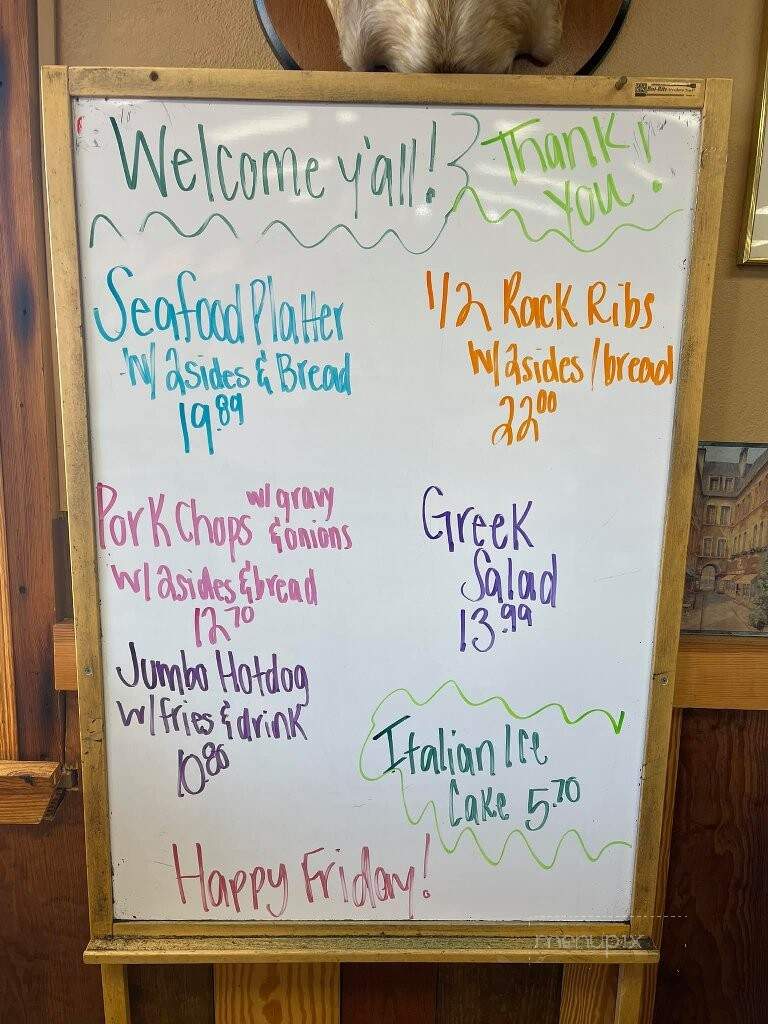 Welcome y'all!
Thank
You!
Seafood Platter
w/ 2sides & Bread
19.89
1/2 Rack Ribs
w/ 2sides / bread
22.00
Pork Chops w/ gravy
& onions
w/ 2sides & bread
12.70
Greek
Salad
13.99
Jumbo Hotdog
w/ fries & drink
10.80
Italian Ice
Cake 5.70
Happy Friday!
menupix